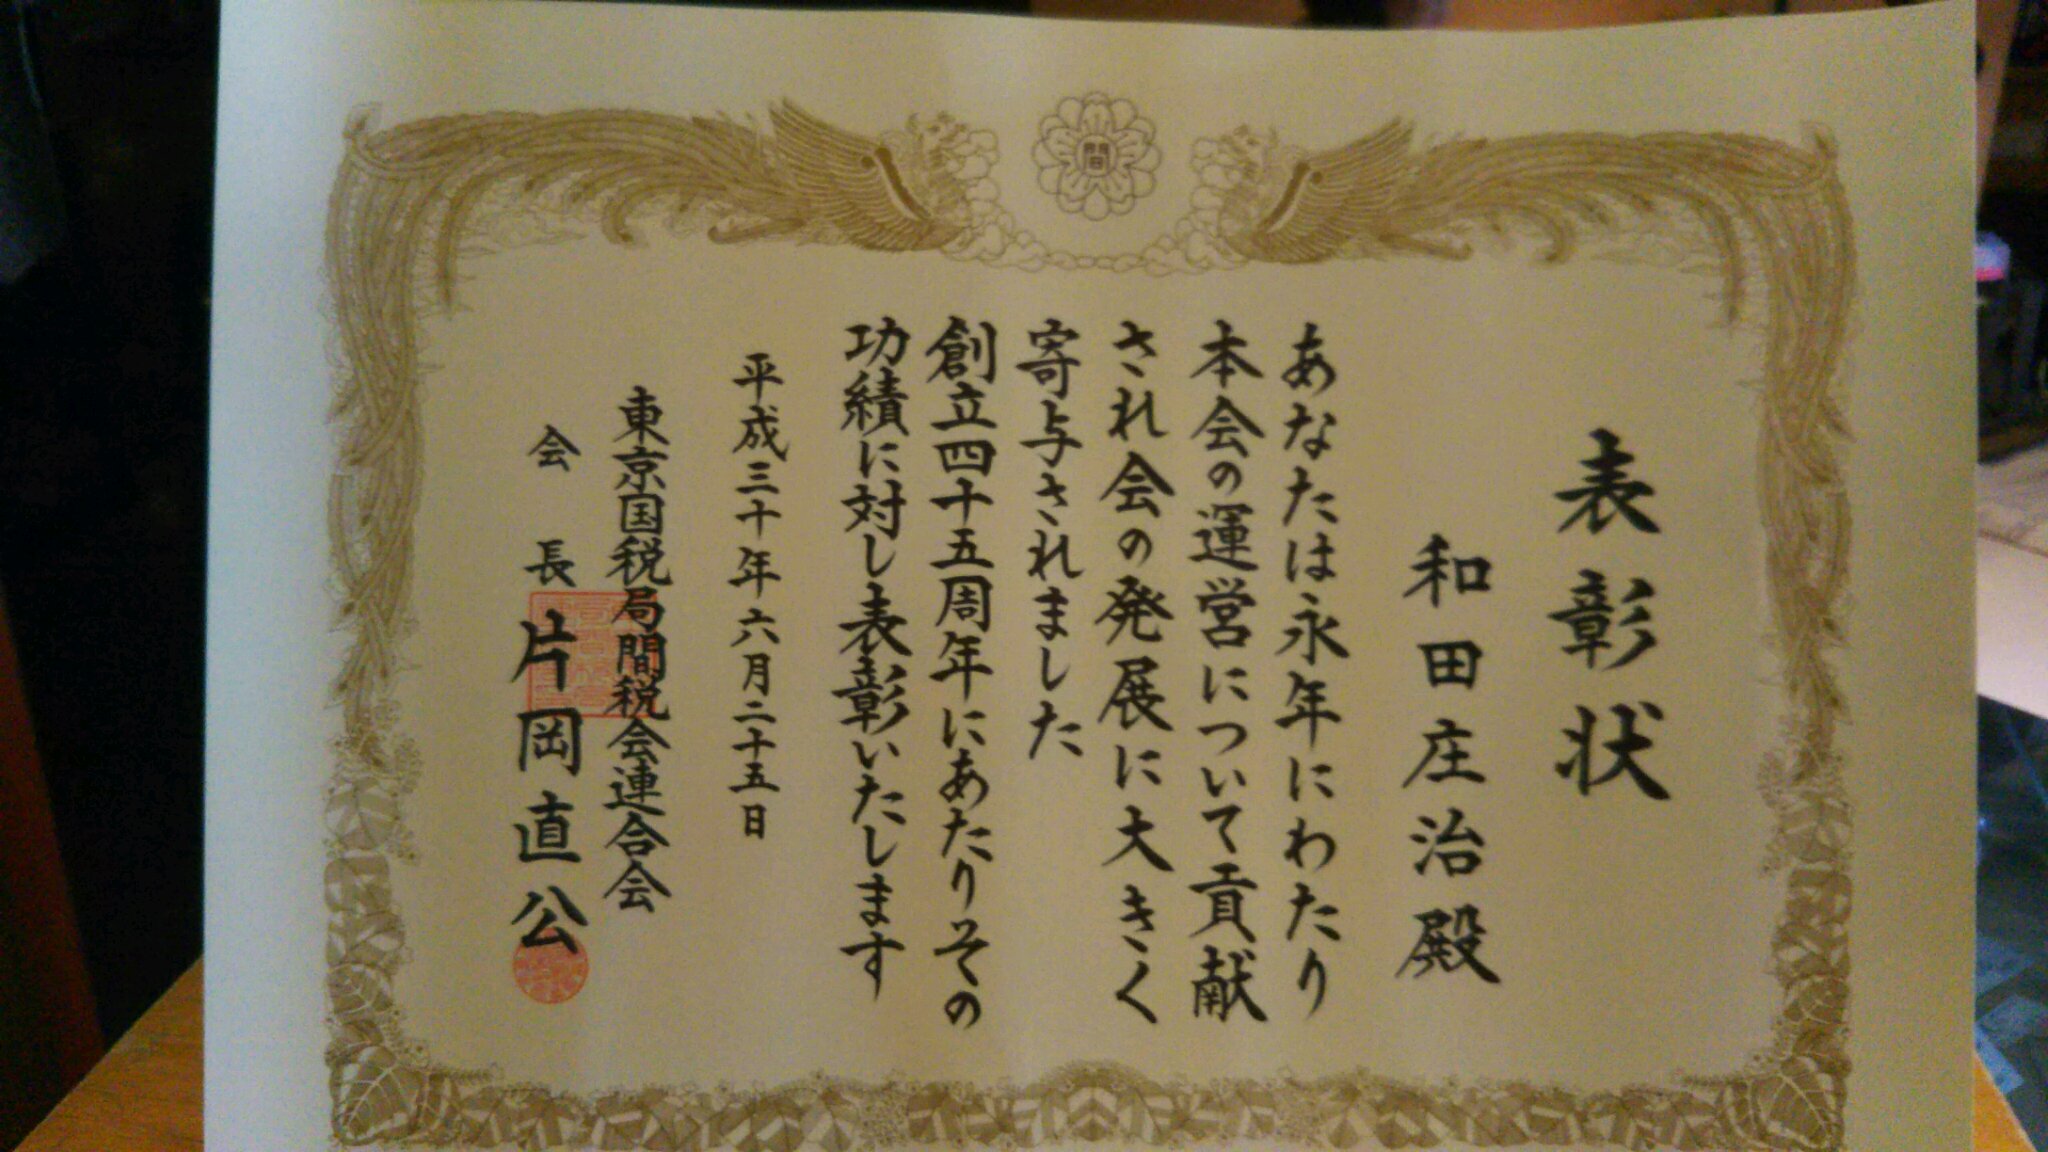 間
表彰状
和田庄治殿
あなたは永年にわたり
本会の運営について貢献
され会の発展に大きく
寄与されました
創立四十五周年にあたりその
功績に対し表彰いたします
平成三十年六月二十五日
東京国税局間税会連合会
会長 片岡直公